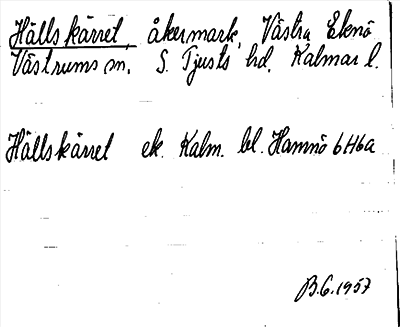 Hällskärret, åkermark, Västra Eknö
Västrums sn. S. Tjusts hd. Kalmar l.
Hällskärret ek. Kalm. bl. Hamnö 6H6a
B.G. 1957